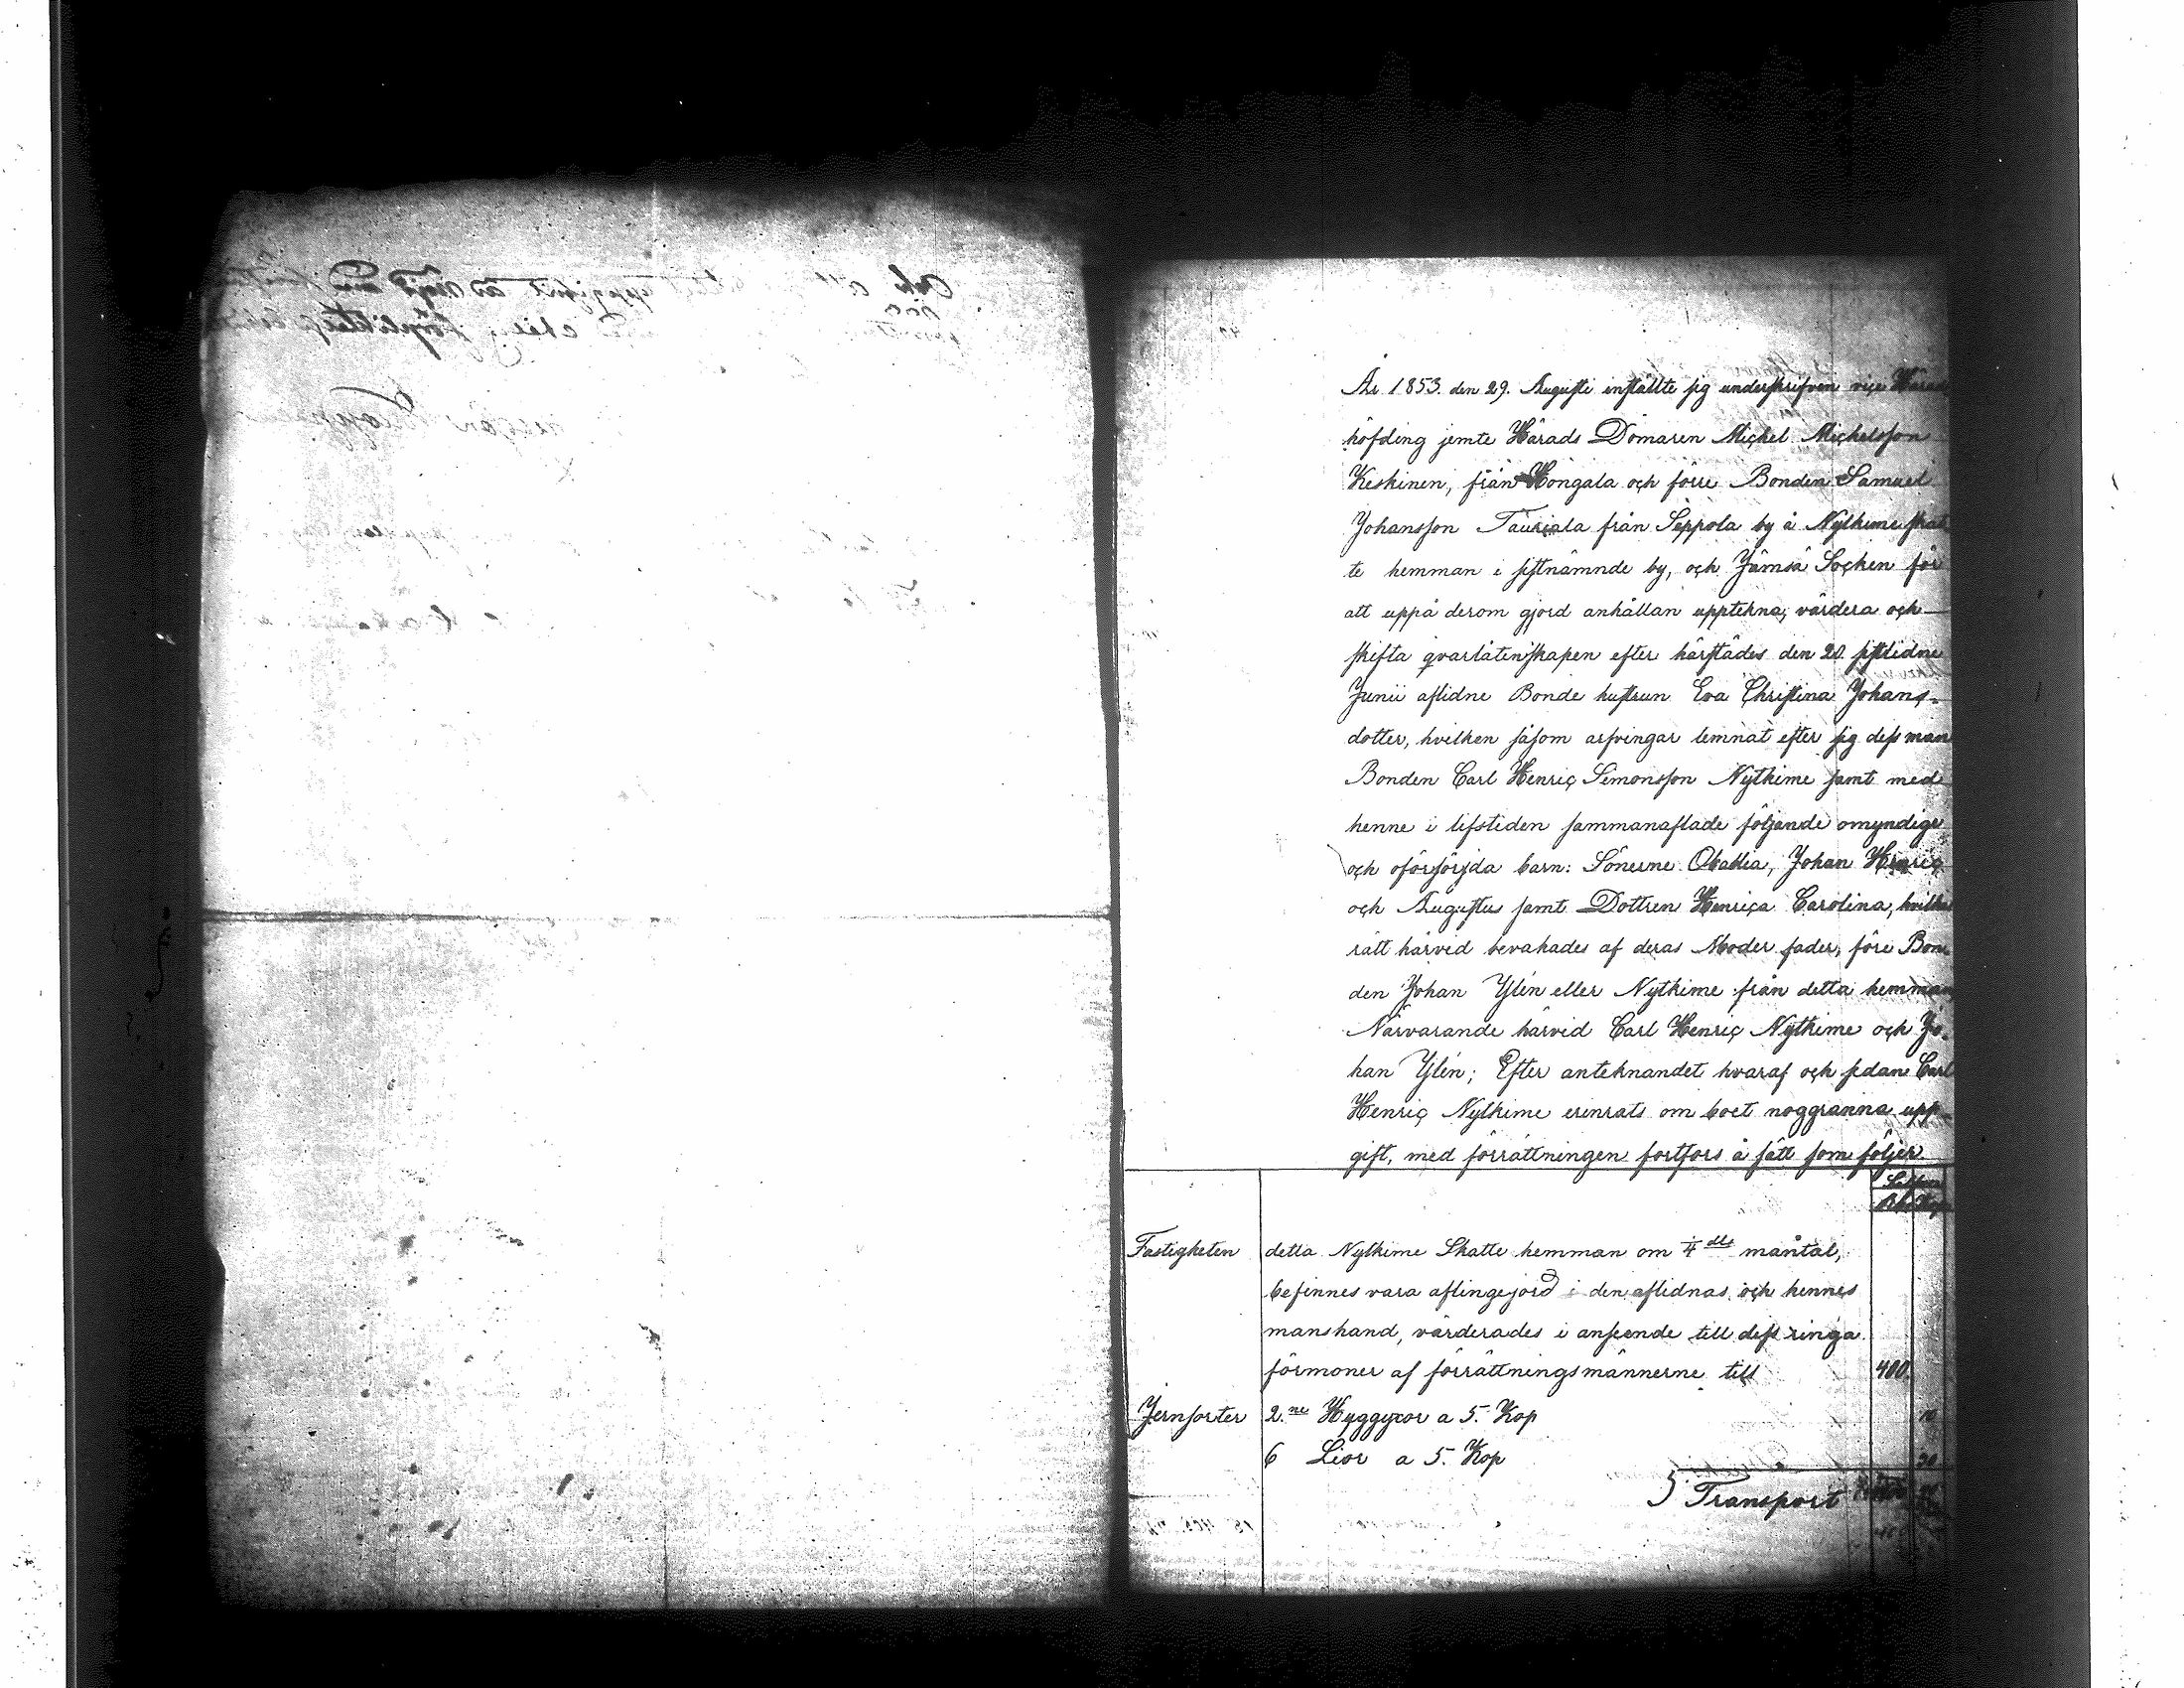 År 1853. den 29. Augusti inställte sig underskrifven viçe Härads
höfding jemte Härads Domaren Miçhel Miçhelsson
Keskinen, från Hongala oçh förre Bonden Samuel
Johansson Tauriala från Seppola by å Nytkime skat
te hemman i sistnämnde by, oçh Jämsä Soçken för
att uppå derom gjord anhållan upptekna, värdera oçh
skifta qvarlåtenskapen efter härstädes den 20 sistlidne
Junii aflidne Bonde hustrun Eva Christina Johans-
dotter, hvilken såsom arfvingar lemnat efter sig dess man
Bonden Carl Henriç Simonsson Nytkime samt med
henne i lifstiden sammanaflade följande omyndige
oçh oförsörjda barn: Sönerne Obadia, Johan Henriç
oçh Augustus samt Dottren Henriça Carolina, hvilkas
rätt härvid bevakades af deras Moder fader, före Bon-
den Johan Ylén eller Nytkime från detta hemman
Närvarande härvid Carl Henriç Nytkime oçh Jo-
han Ylén; Efter anteknandet hvaraf oçh sedan Carl
Henriç Nytkime erinrats om boet noggranna upp-
gift, med förrättningen fortfors å sätt som följer.
Fastigheten detta Nytkime Skatte hemman om ¼ dls mantal,
befinnes vara aflingejord i den aflidnas oçh hennes
manshand, värderades i anseende till dess ringa
förmoner af förrättningsmännerne till 400.
Jernsorter 2.ne Hyggyxor a 5. Kop 10
6 Lior a 5. Kop
Transport